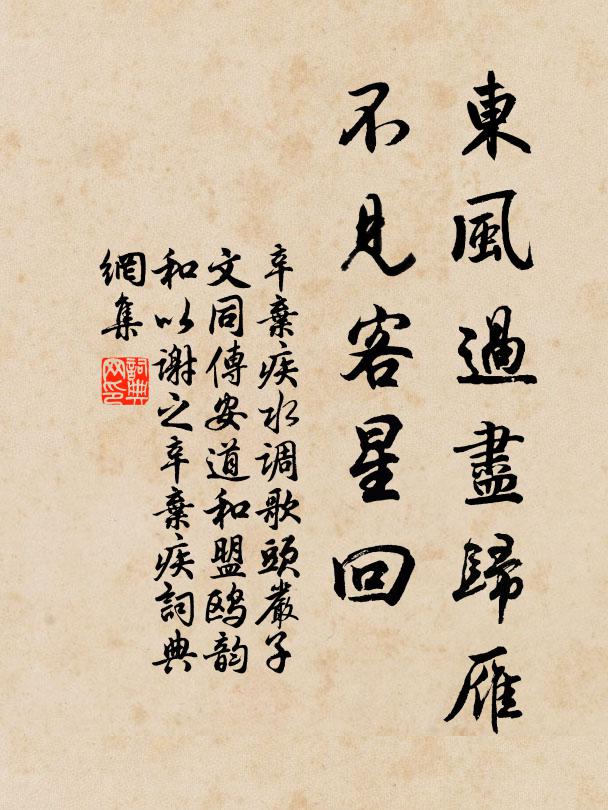 東風過盡歸雁
不見客星回
辛棄疾水调歌頭嚴子
文同傅安道和盟鸥韵
和以谢之辛棄疾詞典
網集
詞典
网印